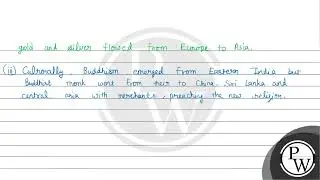 gold and silver flowed from Europe to Asia.
(iii) Culturally, Buddhism emerged from Eastern India but
Buddhist monk went from their to China, Sri Lanka and
central asia with merchants, preaching the new religion.
PW
PW